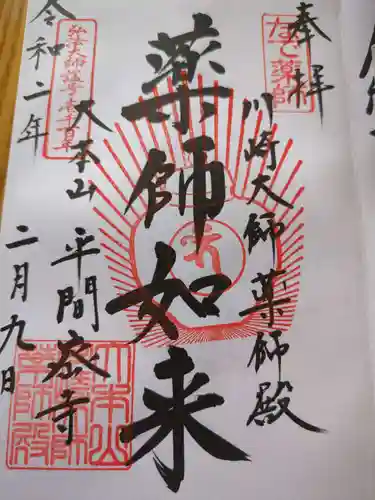 奉拝
なで薬師
川崎大師薬師殿
薬師如来
大本山 平間寺
弘法大師
令和二年 二月九日
大本山
薬師殿